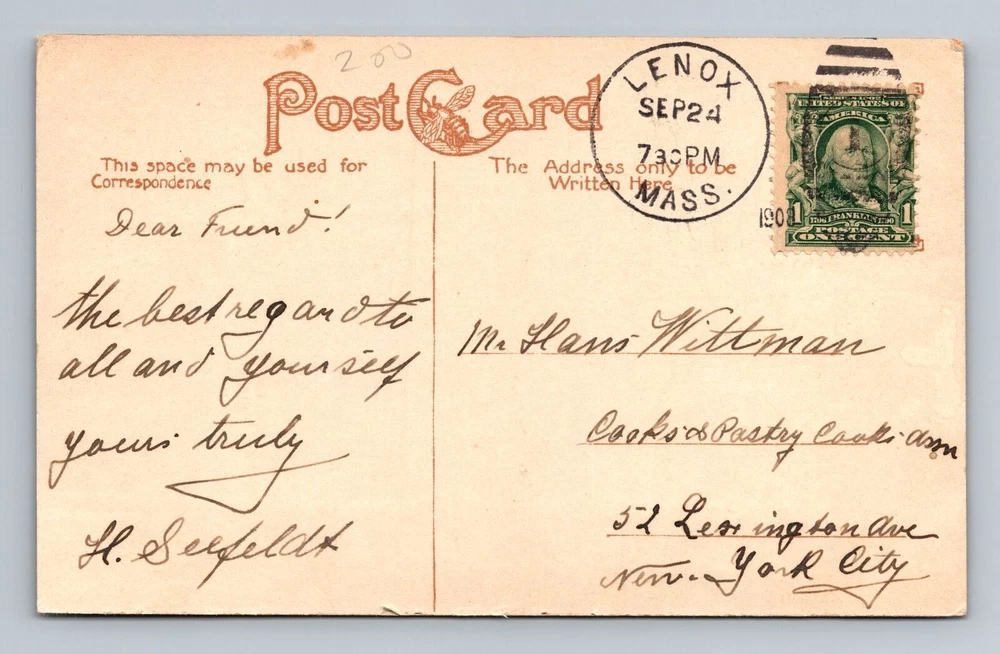 200
Post Card
This space may be used for
Correspondence
The Address only to be
Written Here
LENOX
SEP 24
730 PM
MASS.
1908
SERIES 1902
UNITED STATES OF
AMERICA
1706 FRANKLIN 1790
1 1
POSTAGE
ONE CENT
Dear Friend!
the best regard to
all and yourself
yours truly
H. Seefeldt
Mr Hans Wittman
Cooks & Pastry Cooks assn
52 Lexington Ave
New York City